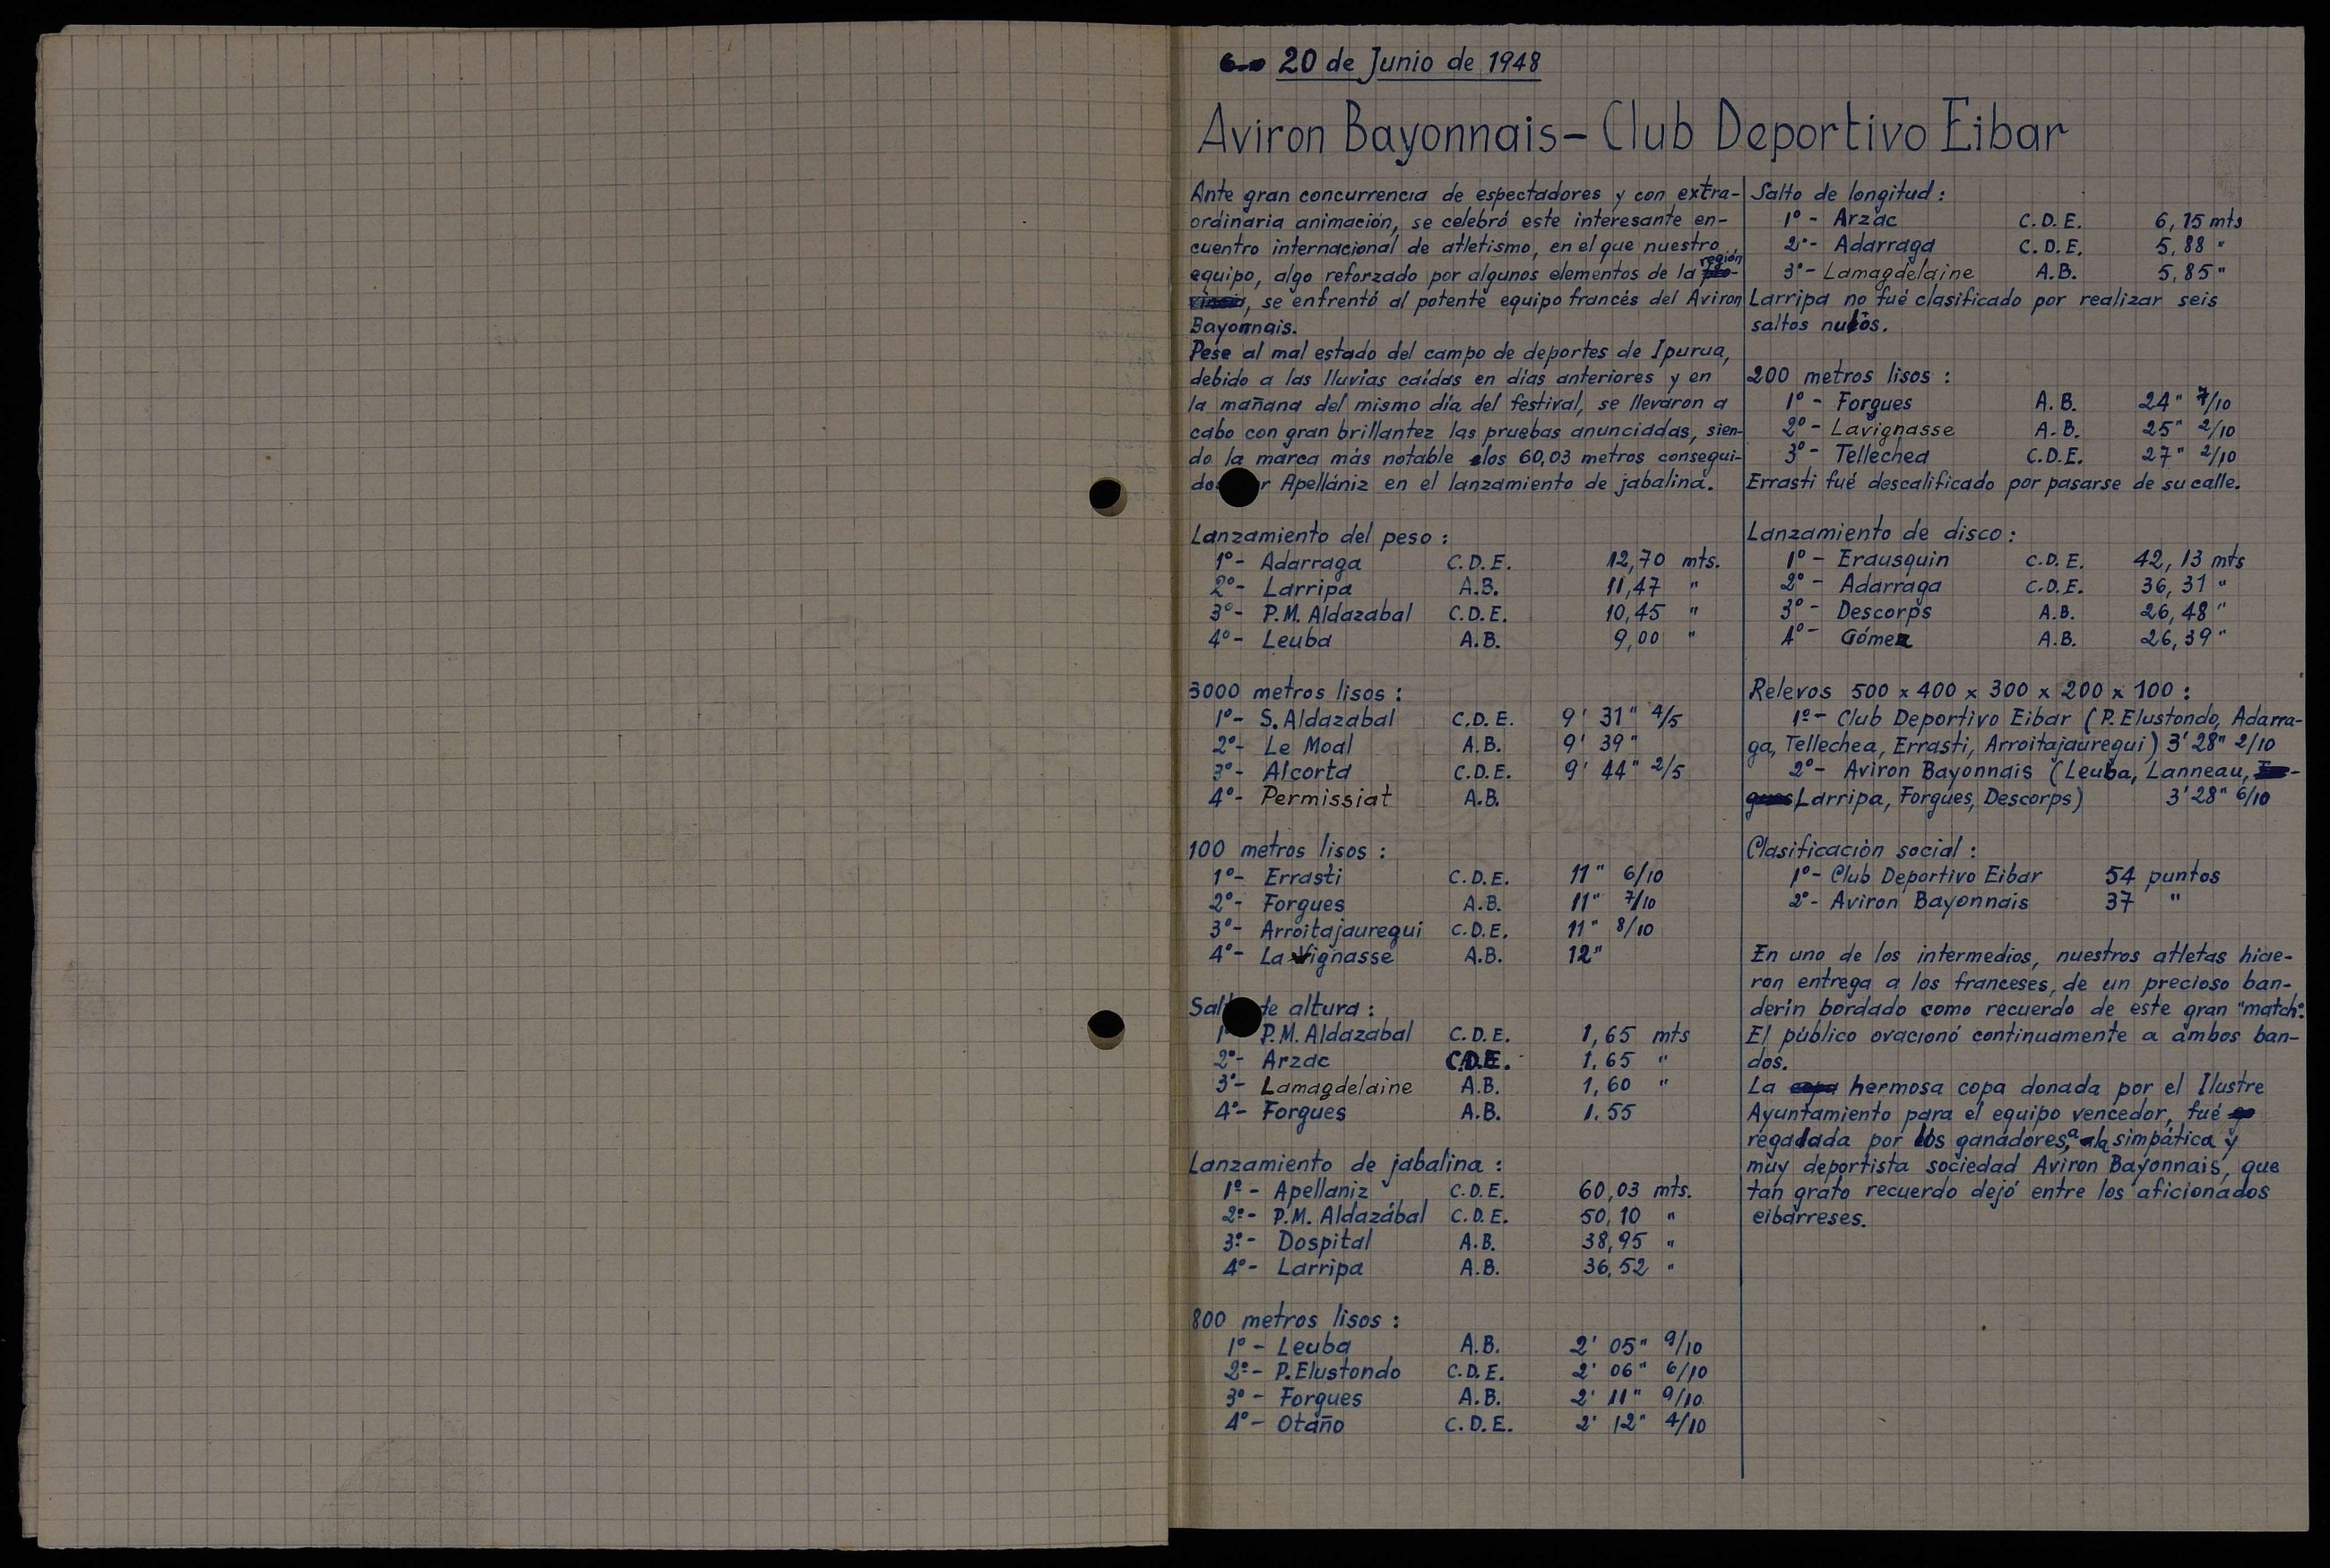 20 de Junio de 1948
Aviron Bayonnais – Club Deportivo Eibar
Ante gran concurrencia de espectadores y con extra-
ordinaria animación, se celebró este interesante en-
cuentro internacional de atletismo, en el que nuestro
equipo, algo reforzado por algunos elementos de la región
, se enfrentó al potente equipo francés del Aviron
Bayonnais.
Pese al mal estado del campo de deportes de Ipurua,
debido a las lluvias caídas en días anteriores y en
la mañana del mismo día del festival, se llevaron a
cabo con gran brillantez las pruebas anunciadas, sien-
do la marca más notable los 60,03 metros consegui-
dos Apellániz en el lanzamiento de jabalina.
Lanzamiento del peso :
1º- Adarraga C.D.E. 12,70 mts.
2º- Larripa A.B. 11,47 "
3º- P.M. Aldazabal C.D.E. 10,45 "
4º- Leuba A.B. 9,00 "
3000 metros lisos :
1º- S. Aldazabal C.D.E. 9' 31" 4/5
2º- Le Moal A.B. 9' 39"
3º- Alcorta C.D.E. 9' 44" 2/5
4º- Permissiat A.B.
100 metros lisos :
1º- Errasti C.D.E. 11" 6/10
2º- Forgues A.B. 11" 7/10
3º- Arroitajauregui C.D.E. 11" 8/10
4º- La Vignasse A.B. 12"
Salto de altura :
1º P.M. Aldazabal C.D.E. 1,65 mts
2º- Arzac C.D.E. 1,65 "
3º- Lamagdelaine A.B. 1,60 "
4º- Forgues A.B. 1.55
Lanzamiento de jabalina :
1º- Apellaniz C.D.E. 60,03 mts.
2º- P.M. Aldazábal C.D.E. 50,10 "
3º- Dospital A.B. 38,95 "
4º- Larripa A.B. 36,52 "
800 metros lisos :
1º- Leuba A.B. 2' 05" 9/10
2º- P. Elustondo C.D.E. 2' 06" 6/10
3º- Forgues A.B. 2' 11" 9/10
4º- Otaño C.D.E. 2' 12" 4/10
Salto de longitud :
1º- Arzac C.D.E. 6,15 mts
2º- Adarraga C.D.E. 5,88 "
3º- Lamagdelaine A.B. 5,85 "
Larripa no fué clasificado por realizar seis
saltos nulos.
200 metros lisos :
1º- Forgues A.B. 24" 7/10
2º- Lavignasse A.B. 25" 2/10
3º- Tellechea C.D.E. 27" 2/10
Errasti fué descalificado por pasarse de su calle.
Lanzamiento de disco :
1º- Erausquin C.D.E. 42,13 mts
2º- Adarraga C.D.E. 36,31 "
3º- Descorps A.B. 26,48 "
4º- Gómez A.B. 26,39 "
Relevos 500 x 400 x 300 x 200 x 100 :
1º- Club Deportivo Eibar (P. Elustondo, Adarra-
ga, Tellechea, Errasti, Arroitajauregui) 3' 28" 2/10
2º- Aviron Bayonnais (Leuba, Lanneau, For-
gues Larripa, Forgues, Descorps) 3' 28" 6/10
Clasificación social :
1º- Club Deportivo Eibar 54 puntos
2º- Aviron Bayonnais 37 "
En uno de los intermedios, nuestros atletas hicie-
ron entrega a los franceses, de un precioso ban-
derín bordado como recuerdo de este gran "match".
El público ovacionó continuamente a ambos ban-
dos.
La copa hermosa copa donada por el Ilustre
Ayuntamiento para el equipo vencedor, fué
regalada por los ganadores, a la simpática y
muy deportista sociedad Aviron Bayonnais, que
tan grato recuerdo dejó entre los aficionados
eibarreses.